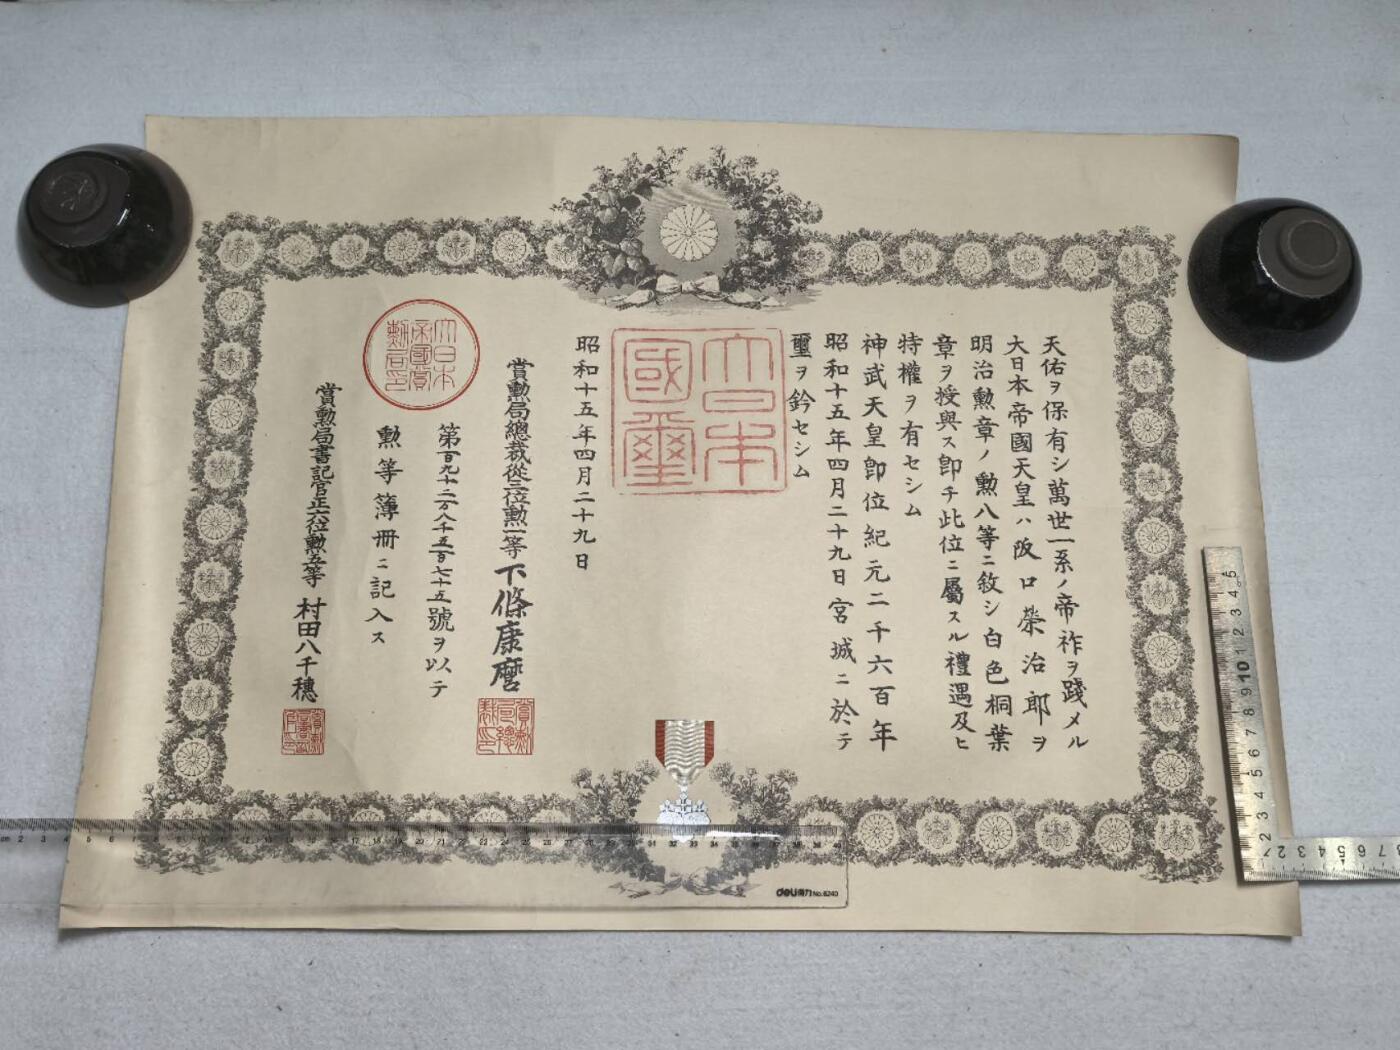 天佑ヲ保有シ萬世一系ノ帝祚ヲ踐メル
大日本帝國天皇ハ阪口榮治郎ヲ
明治勲章ノ勲八等ニ敘シ白色桐葉
章ヲ授與ス卽チ此位ニ屬スル禮遇及ヒ
特權ヲ有セシム
神武天皇卽位紀元二千六百年
昭和十五年四月二十九日宮城ニ於テ
璽ヲ鈐セシム
大日本國璽
昭和十五年四月二十九日
賞勲局總裁從三位勲一等下條康麿
賞勲局總裁印
第百九十二万八千五百七十五號ヲ以テ
勲等簿冊ニ記入ス
大日本帝國賞勲局印
賞勲局書記官正六位勲五等 村田八千穗
deli得力 No.6240